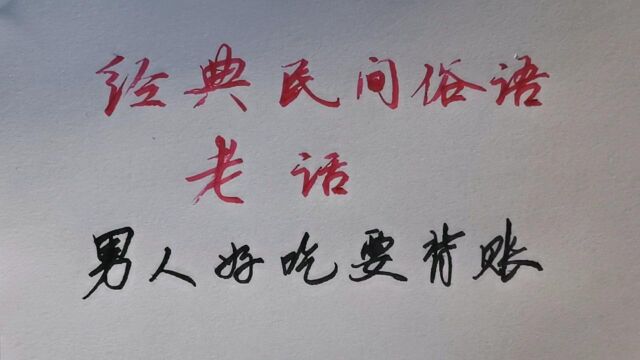 经典民间俗语
老话
男人好吃要背账